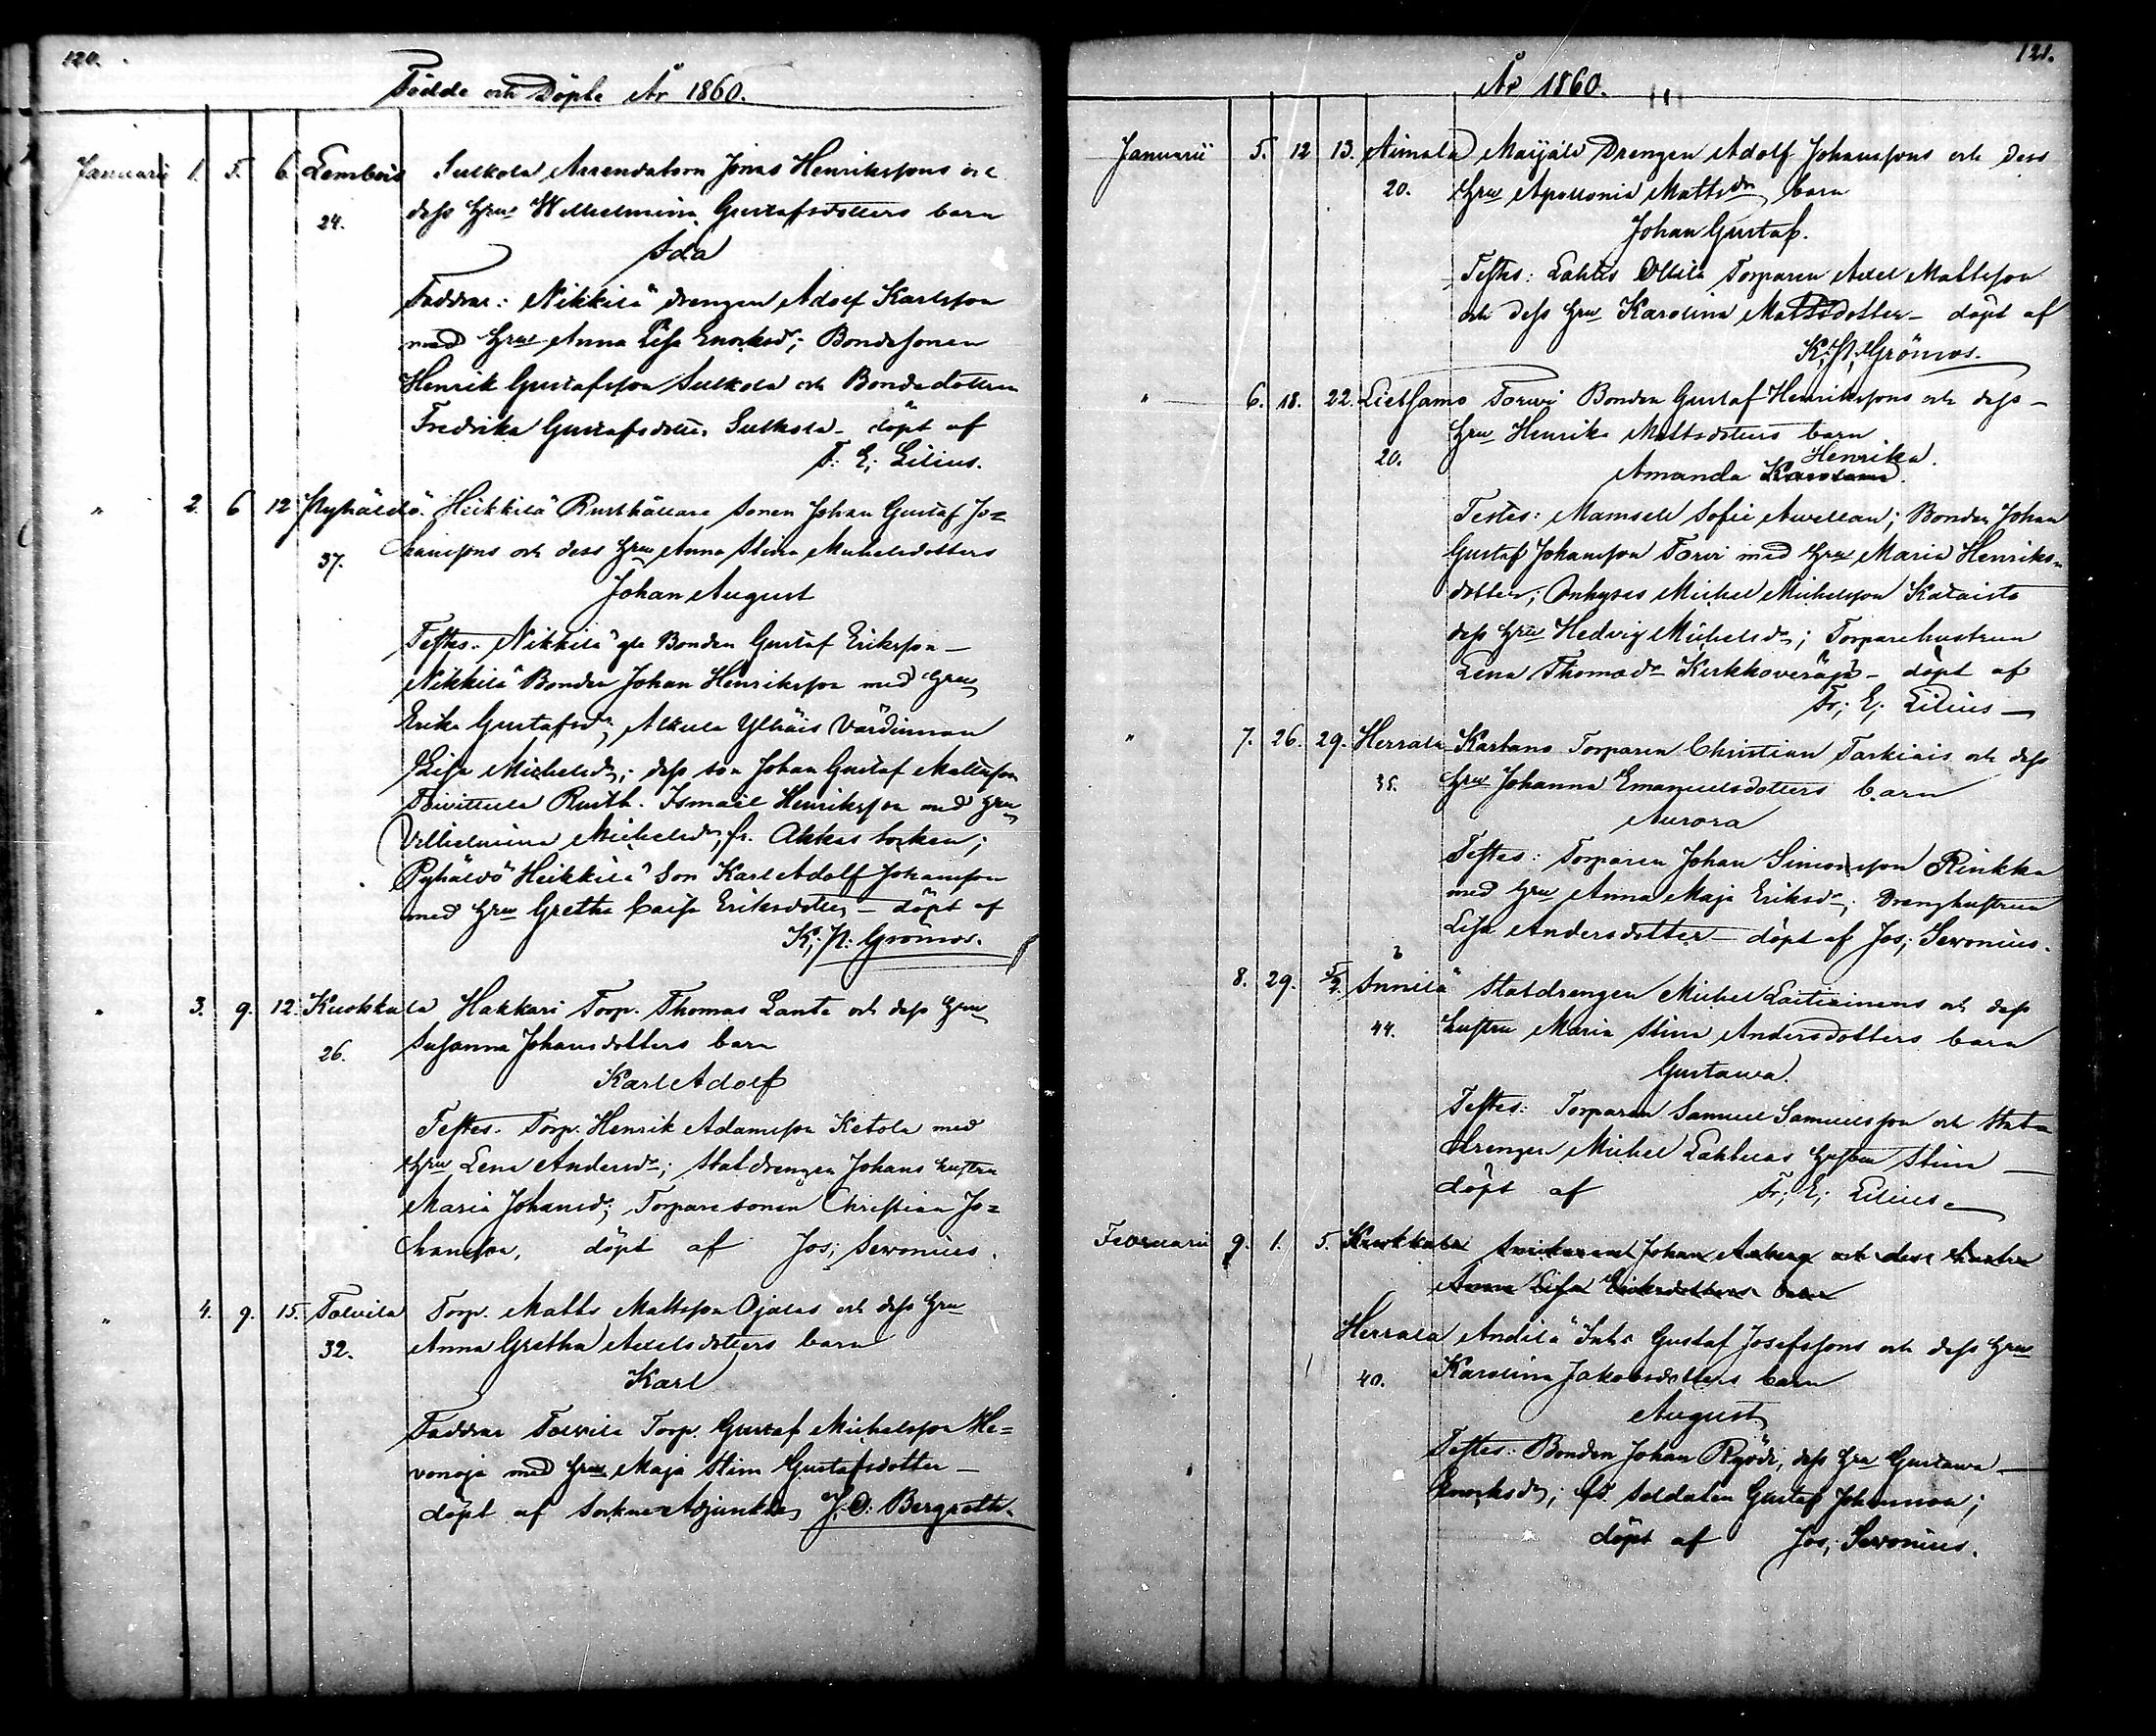 120.
Födde och Döpte År 1860.
Januarii 1. 5. 6 Lembois Sulkola Arrendatorn Jonas Henrikssons och
24. dess Hru Wilhelmina Gustafsdotters barn
Ida
Faddrar: Nikkilä drengen Adolf Karlsson
med Hru Anna Lisa Enoksd; Bondesonen
Henrik Gustafsson Sulkola och Bondedottren
Fredrika Gustafsdotter Sulkola - döpt af
F: E; Lilius.
" 2. 6 12 Pyhäldö. Heikkilä Rusthållare Sonen Johan Gustaf Jo=
37. hanssons och dess Hru Anna Stina Michelsdotters
Johan August
Testes: Nikkilä gla Bonden Gustaf Eriksson -
Nikkilä Bonden Johan Henriksson med Hru
Erika Gustafsdr; Alkula Ylhäis Värdinnan
Lisa Michelsdr; dess son Johan Gustaf Mattsson
Rusth. Ismael Henriksson med Hru
Vilhelmina Michelsdr, fr. Akkas Socken;
Pyhäldö Heikkilä Son Karl Adolf Johansson
med Hru Gretha Caisa Eriksdotter - döpt af
K; P: Grönros.
" 3. 9. 12. Kuokkala Hakkari Torp. Thomas Lanta och dess Hru
26. Susanna Johansdotters barn
Karl Adolf
Testes. Torp. Henrik Adamsson Ketola med
Hru Lena Andersdr; Statdrengen Johans hustru
Maria Johansd; Torparesonen Christian Jo=
hansson, döpt af Jos; Seronius.
" 4. 9. 15. Tolvila Torp. Matts Mattsson Ojalas och dess Hru
32. Anna Gretha Axelsdotters barn
Karl
Faddrar Tolvila Torp. Gustaf Michelsson He=
vonoja med Hru Maja Stina Gustafsdotter -
döpt af Sockne Adjunkten J. O. Bergroth.
121.
År 1860.
Januarii 5. 12 13. Aimala Maijala Drengen Adolf Johanssons och dess
20. Hru Apollonia Mattsdr barn
Johan Gustaf.
Testes: Lahtis Ollila Torparen Axel Mattsson
och dess Hru Karolina Mattsdotter - döpt af
K; P; Grönros.
" 6. 18. 22. Torvi Bonden Gustaf Henrikssons och dess -
20. Hru Henrika Mattsdotters barn
Henrika.
Amanda Karolina.
Testes: Mamsell Sofie Avellan; Bonden Johan
Gustaf Johansson Torvi med Hru Maria Henriks=
dotter; Inhyses Michel Michelsson Kataisto
dess Hru Hedvig Michelsdr; Torparehustrun
Lena Thomasdr Kirkkoveräjä - döpt af
Fr; E; Lilius -
" 7. 26. 29. Herrala Kartano Torparen Christian Tarkiais och dess
35. Hru Johanna Emanuelsdotters barn
Aurora
Testes: Torparen Johan Simonsson Rinkka
med Hru Anna Maja Eriksdr; Drenghustrun
Lisa Andersdotter - döpt af Jos; Seronius.
8. 29. 5/2. Innilä Statdrengen Michel Laitiainens och dess
44. hustru Maria Stina Andersdotters barn
Gustava.
Testes: Torparen Samuel Samuelsson och Stat=
drengen Michel Lahtelas hustru Stina -
döpt af Fr; E; Lilius
Februarii 9. 1. 5. Kuokkala Snickaren Johan Amberg och dess hustru
Anna Lisa Eriksdotters barn
Herrala Andilä Inhs Gustaf Josefssons och dess Hru
40. Karolina Jakobsdotters barn
August
Testes: Bonden Johan Ryödi, dess Hru Gustava
Enoksdr; fd. Soldaten Gustaf Johansson;
döpt af Jos; Seronius.